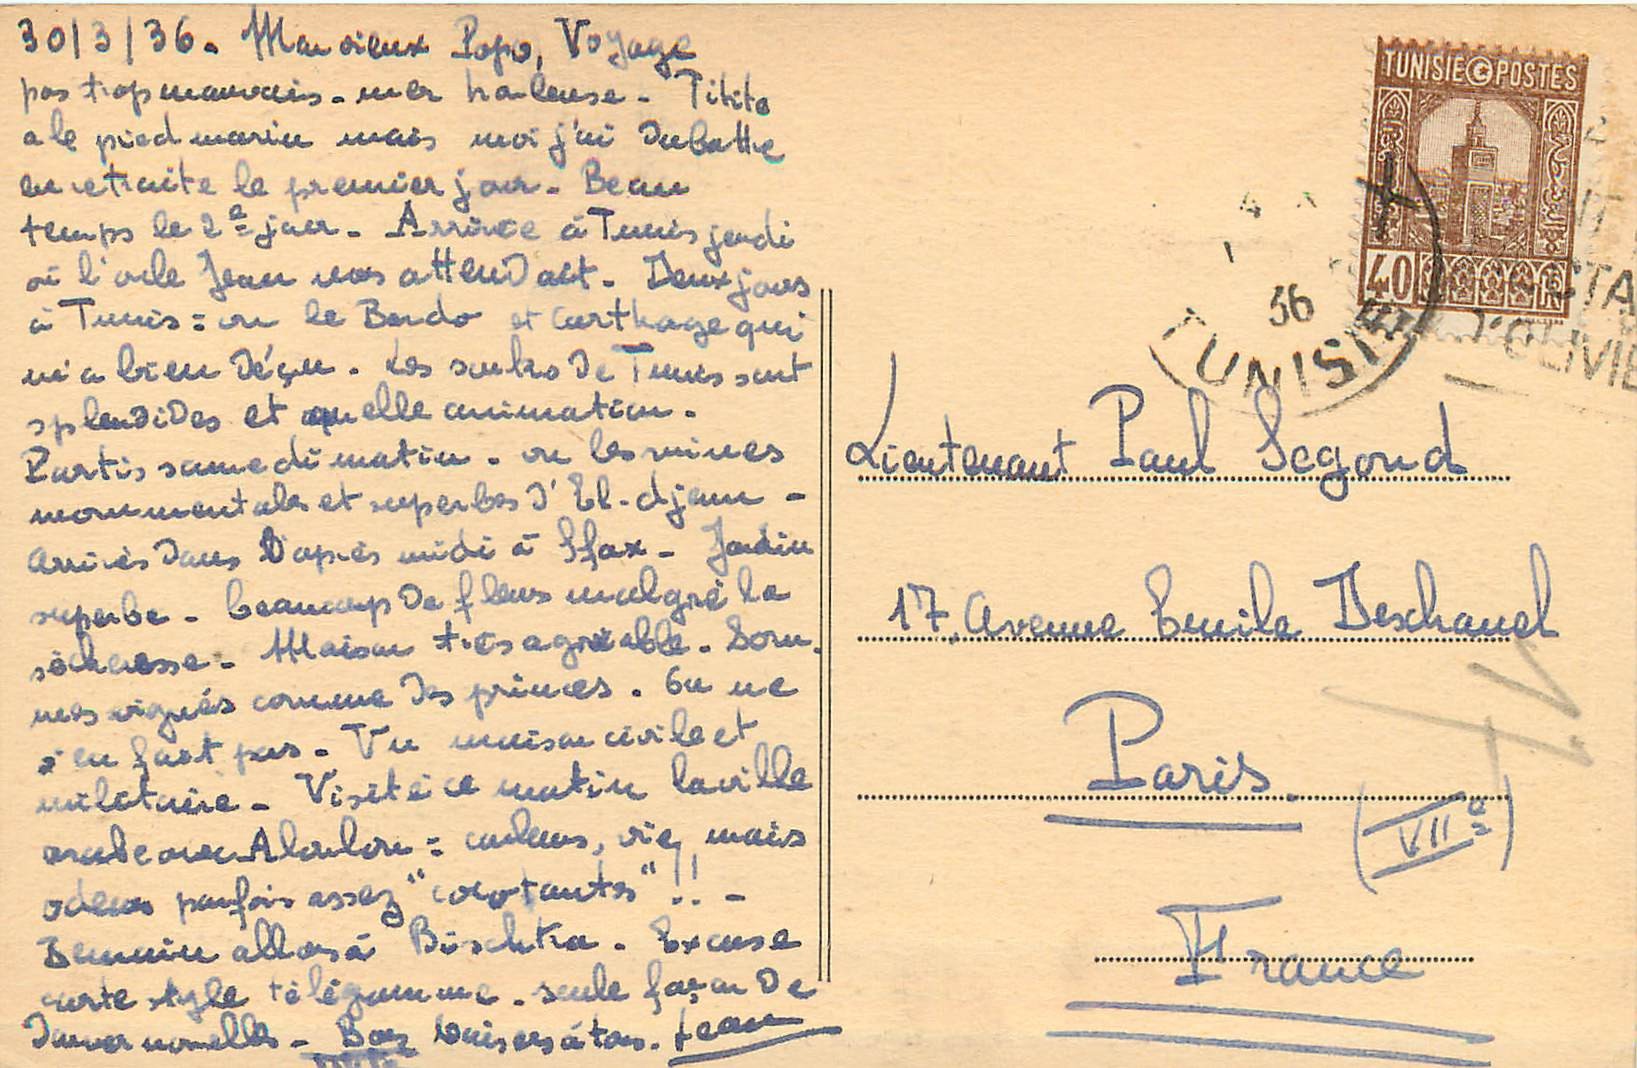 30/3/36. Mon vieux Popo, Voyage
pas trop mauvais - mer houleuse - Titito
a le pied marin mais moi j'ai du battre
en retraite le premier jour - Beau
temps le 2e jour - Arrivée à Tunis jeudi
où l'oncle Jean nous attendait - Deux jours
à Tunis = vu le Bardo et Carthage qui
m'a bien déçu. Les souks de Tunis sont
splendides et quelle animation.
Partis samedi matin - vu les ruines
monumentales et superbes d'El-djem -
arrivés dans l'après midi à Sfax - Jardin
superbe - beaucoup de fleurs malgré la
sécheresse - Maison très agréable - Som.
mes soignés comme des princes. On ne
s'en fait pas - Vu maison civile et
militaire - Visité ce matin la ville
arabe avec = couleurs, vie, mais
odeurs parfois assez "cocotantes" !! -
Demain allons à - Excuse
carte style télégramme - seule façon de
donner nouvelles - Bons baisers à tous. Jean
TUNISIE POSTES
40
36
TUNIS
D'OLIVE
Lieutenant Paul Segond
17, Avenue Emile Deschanel
Paris.
(VIIe)
France